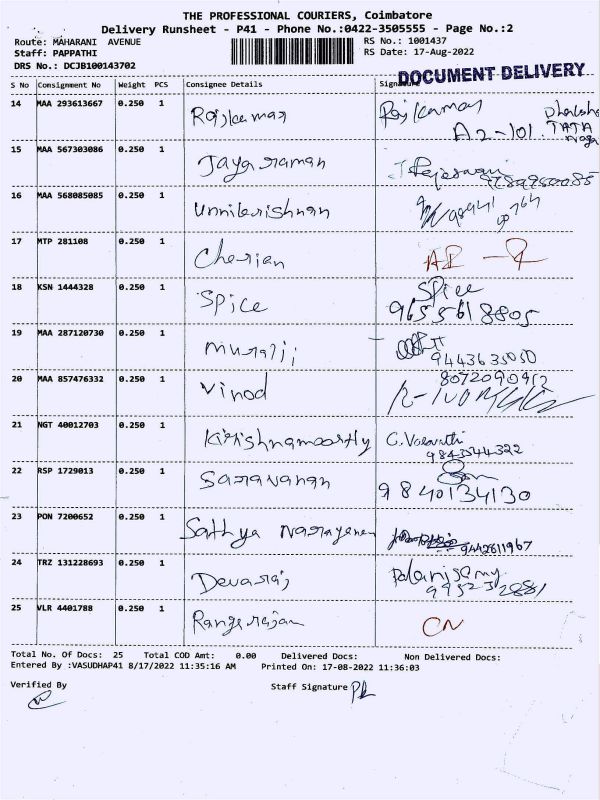 THE PROFESSIONAL COURIERS, Coimbatore
Delivery Runsheet - P41 - Phone No.:0422-3505555 - Page No.:2
Route: MAHARANI AVENUE
RS No.: 1001437
Staff: PAPPATHI
RS Date: 17-Aug-2022
DRS No.: DCJB100143702
DOCUMENT DELIVERY
S No Consignment No Weight PCS Consignee Details Signature
14 MAA 293613667 0.250 1 Rajkumar Rajkumar
A2-101. TATA
15 MAA 567303086 0.250 1 Jayaraman J.
9789950085
16 MAA 568085085 0.250 1 Unnikrishnan
17 MTP 281108 0.250 1 Cherian
18 KSN 1444328 0.250 1 Spice Spice
9655618805
19 MAA 287120730 0.250 1 murali
9443635050
20 MAA 857476332 0.250 1 Vinod 8072090952
21 NGT 40012703 0.250 1 Krishnamoorthy C.
9843544322
22 RSP 1729013 0.250 1 Saravanan
9840134130
23 PON 7200652 0.250 1 Sathya Narayanan
9442611967
24 TRZ 131228693 0.250 1 Devaraj Palanisamy
9952312881
25 VLR 4401788 0.250 1 Rangarajan CN
Total No. Of Docs: 25 Total COD Amt: 0.00 Delivered Docs: Non Delivered Docs:
Entered By :VASUDHAP41 8/17/2022 11:35:16 AM Printed On: 17-08-2022 11:36:03
Verified By Staff Signature